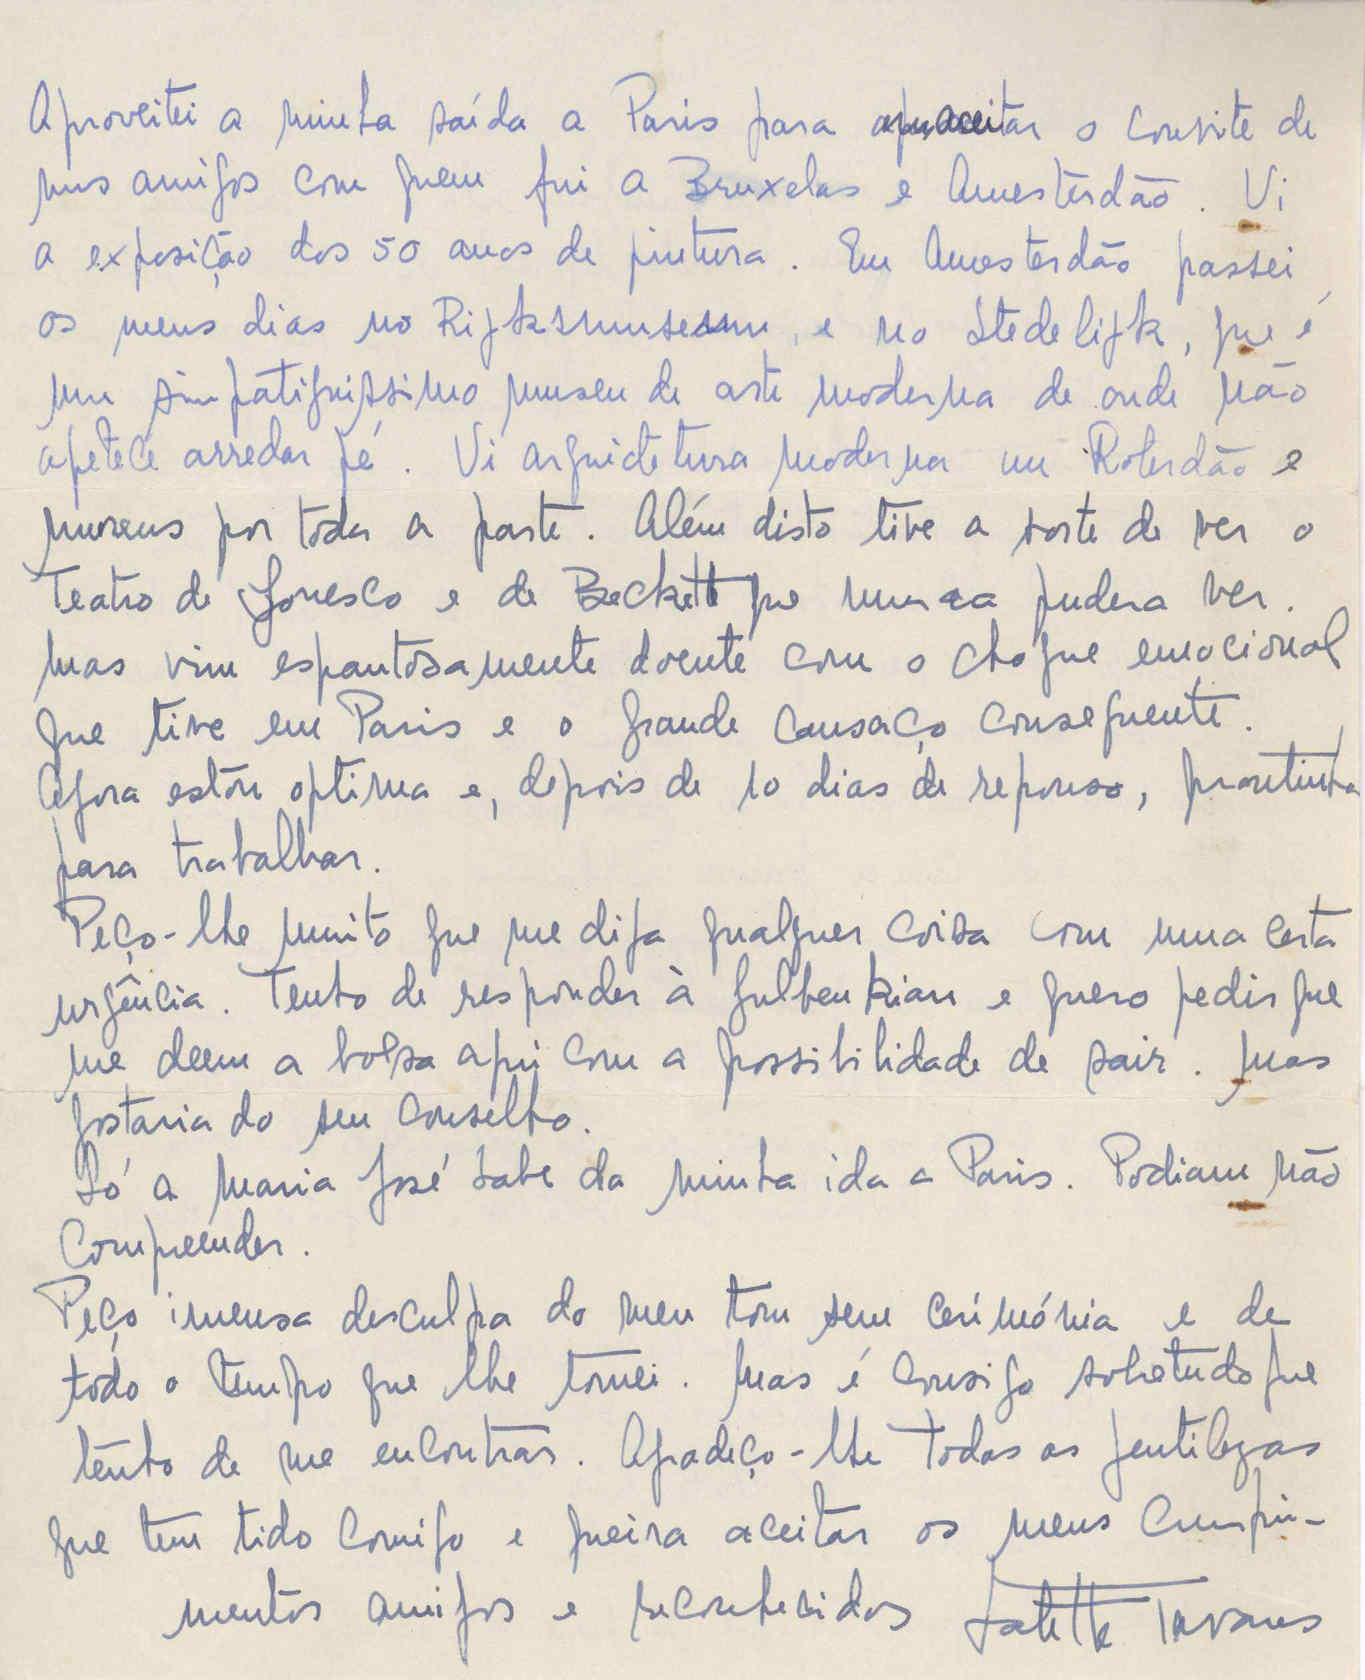 Aproveitei a minha saída a Paris para aceitar o convite de
uns amigos com quem fui a Bruxelas e Amesterdão. Vi
a exposição dos 50 anos de pintura. Em Amesterdão passei
os meus dias no Rijksmuseum, e no Stedelijk, que é
um simpatiquissimo museu de arte moderna de onde não
apetece arredar pé. Vi arquitetura moderna em Roterdão e
museus por toda a parte. Além disto tive a sorte de ver o
Teatro de Ionesco e de Beckett que nunca pudera ver.
Mas vim espantosamente doente com o choque emocional
que tive em Paris e o grande cansaço consequente.
Agora estou optima e, depois de 10 dias de repouso, prontinha
para trabalhar.
Peço-lhe muito que me diga qualquer coisa com uma certa
urgência. Tenho de responder à Gulbenkian e quero pedir que
me deem a bolsa aqui com a possibilidade de sair. Mas
gostaria do seu conselho.
Só a Maria José sabe da minha ida a Paris. Podiam não
compreender.
Peço imensa desculpa do meu tom sem cerimónia e de
todo o tempo que lhe tomei. Mas é consigo sobretudo que
tento de me encontrar. Agradeço-lhe todas as gentilezas
que tem tido comigo e queira aceitar os meus cumpri-
mentos amigos e reconhecidos Salette Tavares